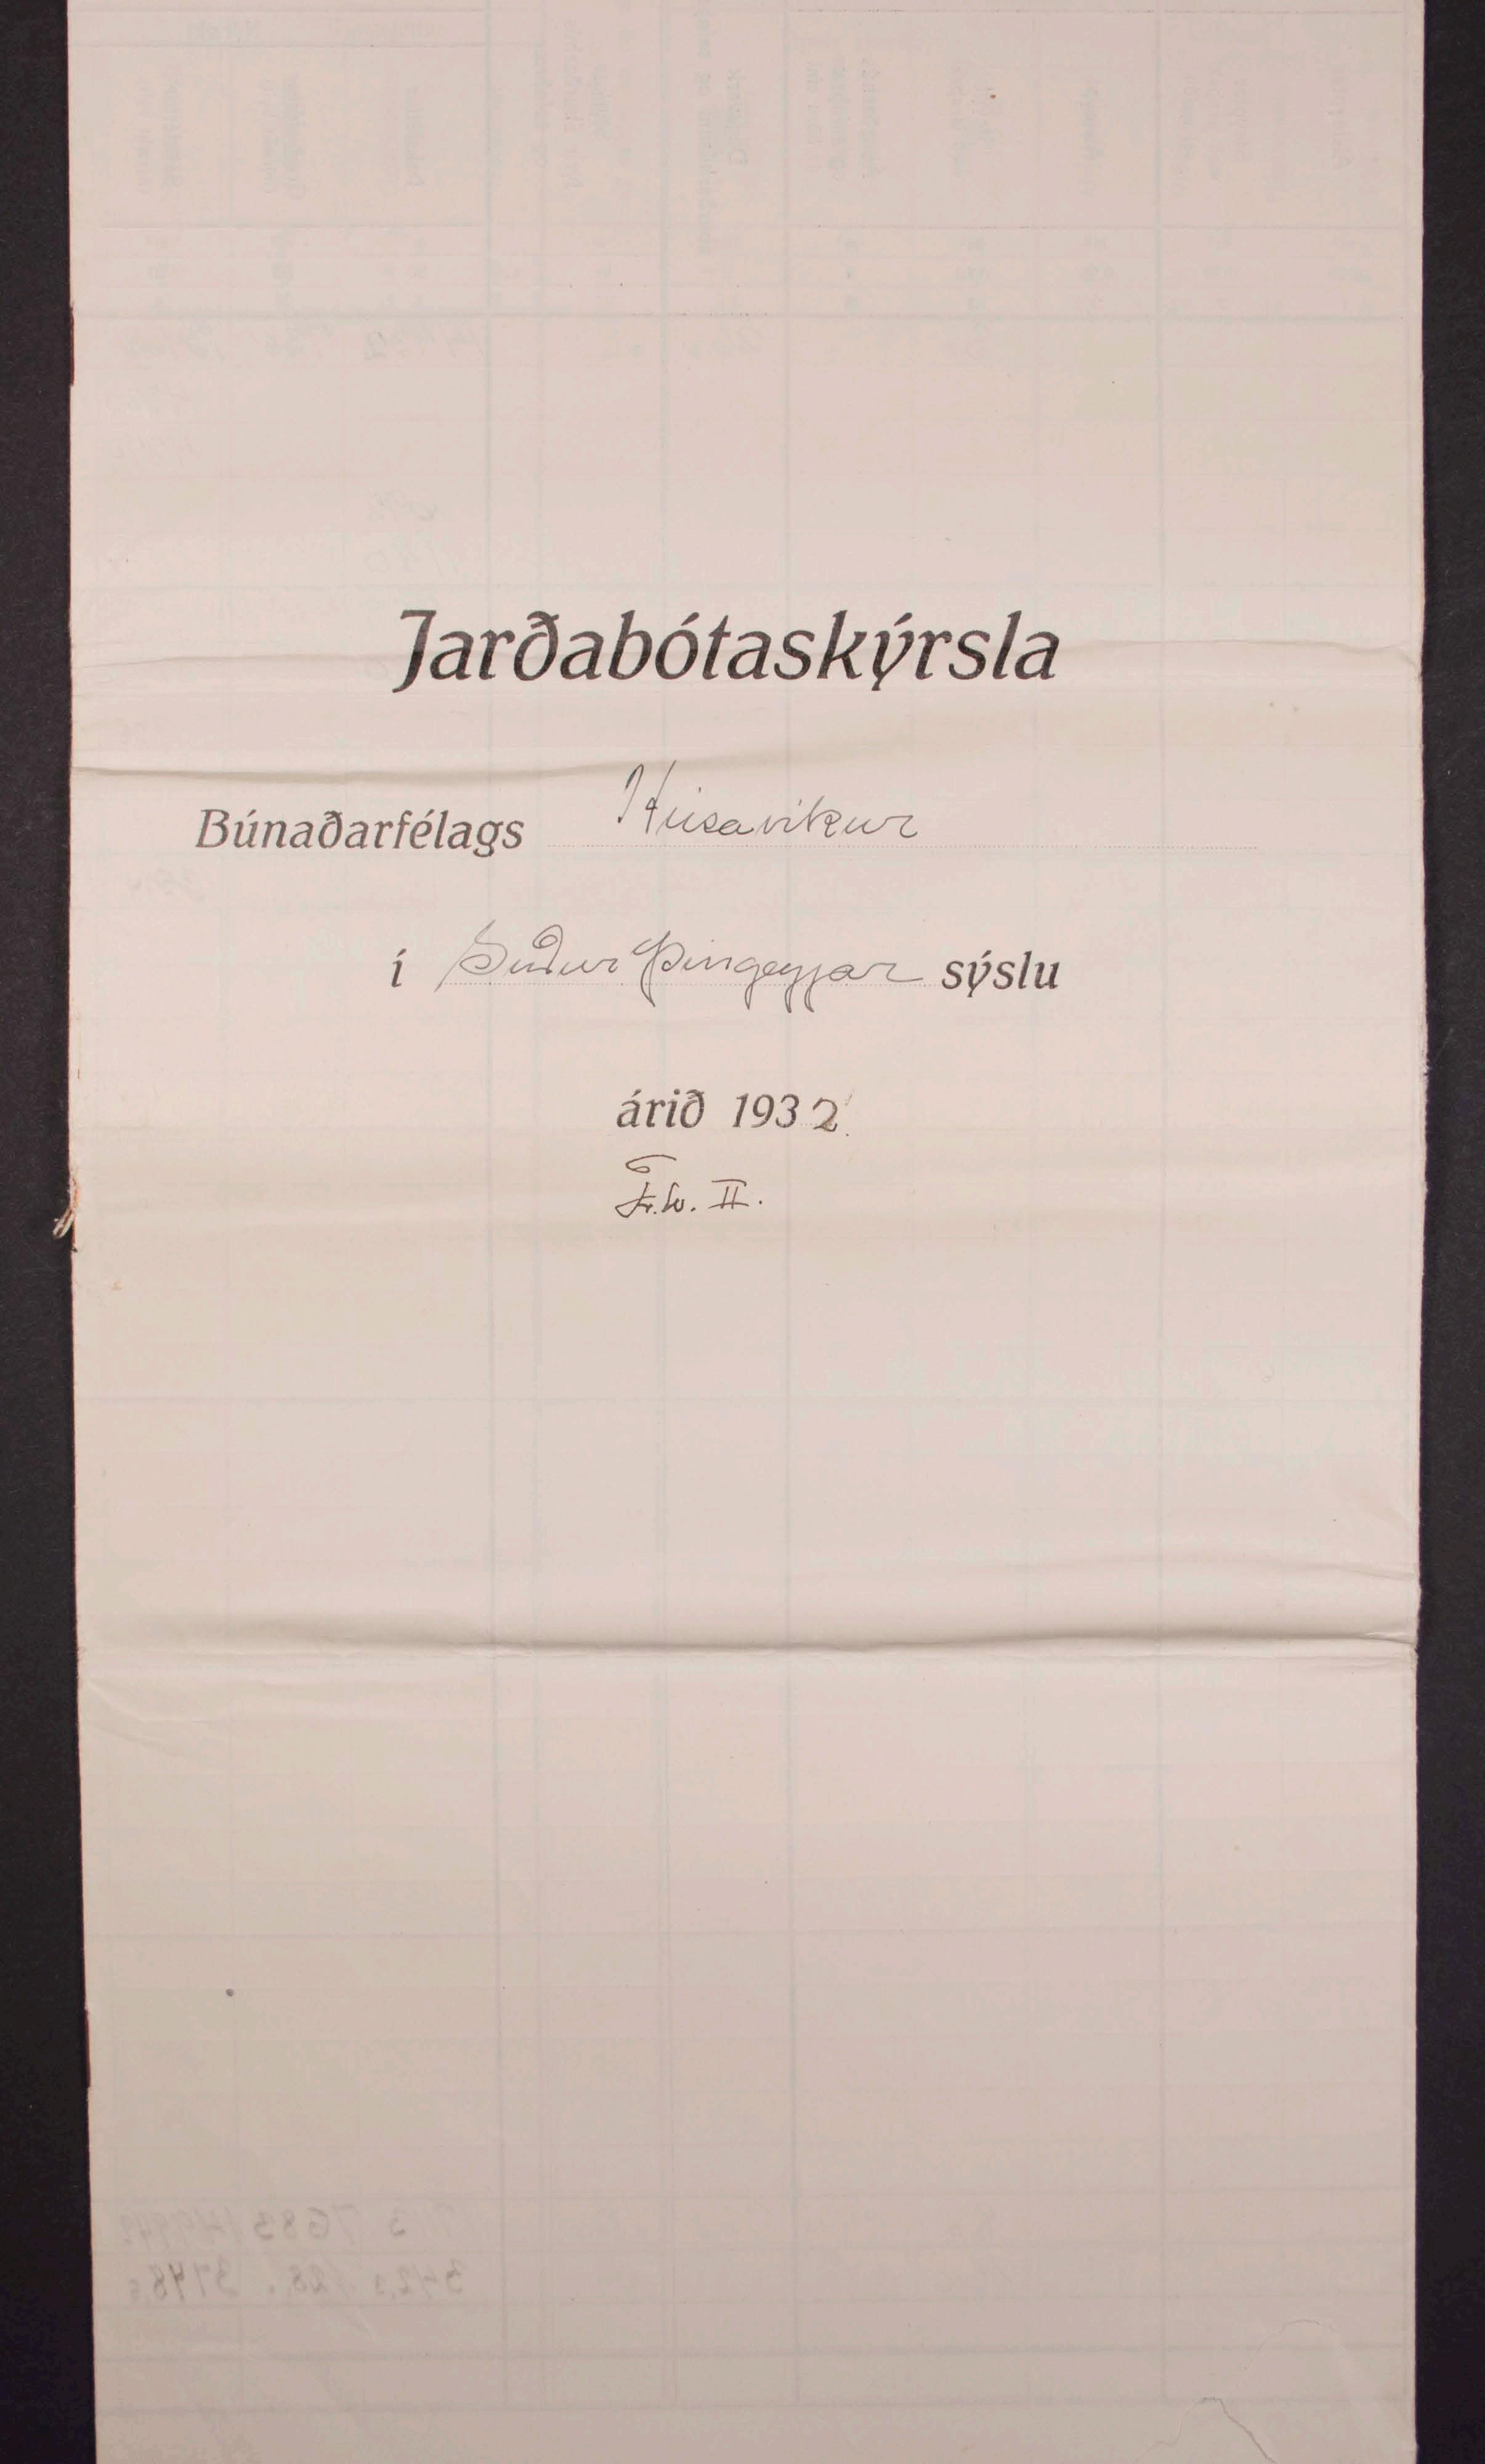 Jarðabótaskýrsla
Búnaðarfélags Húsavíkur
í Suður Þingeyjar sýslu
árið 1932.
II.